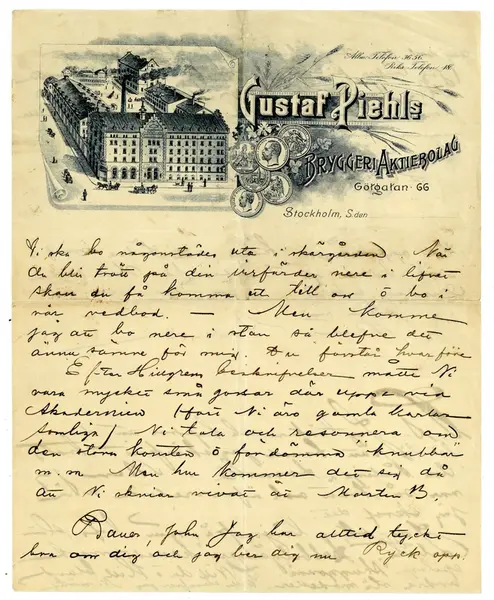 Allm. Telefon 36 56.
Riks Telefon 48
Gustaf Piehls
Bryggeri Aktiebolag
Götgatan 66
Stockholm, S. den
Vi ska bo någonstädes ute i skärgården. När
du blir trött på din nere i
skall du få komma ut till oss o bo i
vår vedbod. — Men komme
jag att bo nere i stan så blefve det
ännu sämre för mig. Du förstår hvarföre
Efter Hillgrens beskrifvelser måtte Ni
vara mycket små gossar där uppe vid
Akademien (fast Ni äro gamla karlar
somliga) Ni tala och resonnera om
den stora konsten o fördömma
m.m Men hur kommer det sig då
att Ni skriar vivat åt Martin B.
Bauer, John Jag har alltid tyckt
bra om dig och jag ber dig nu Ryck opp